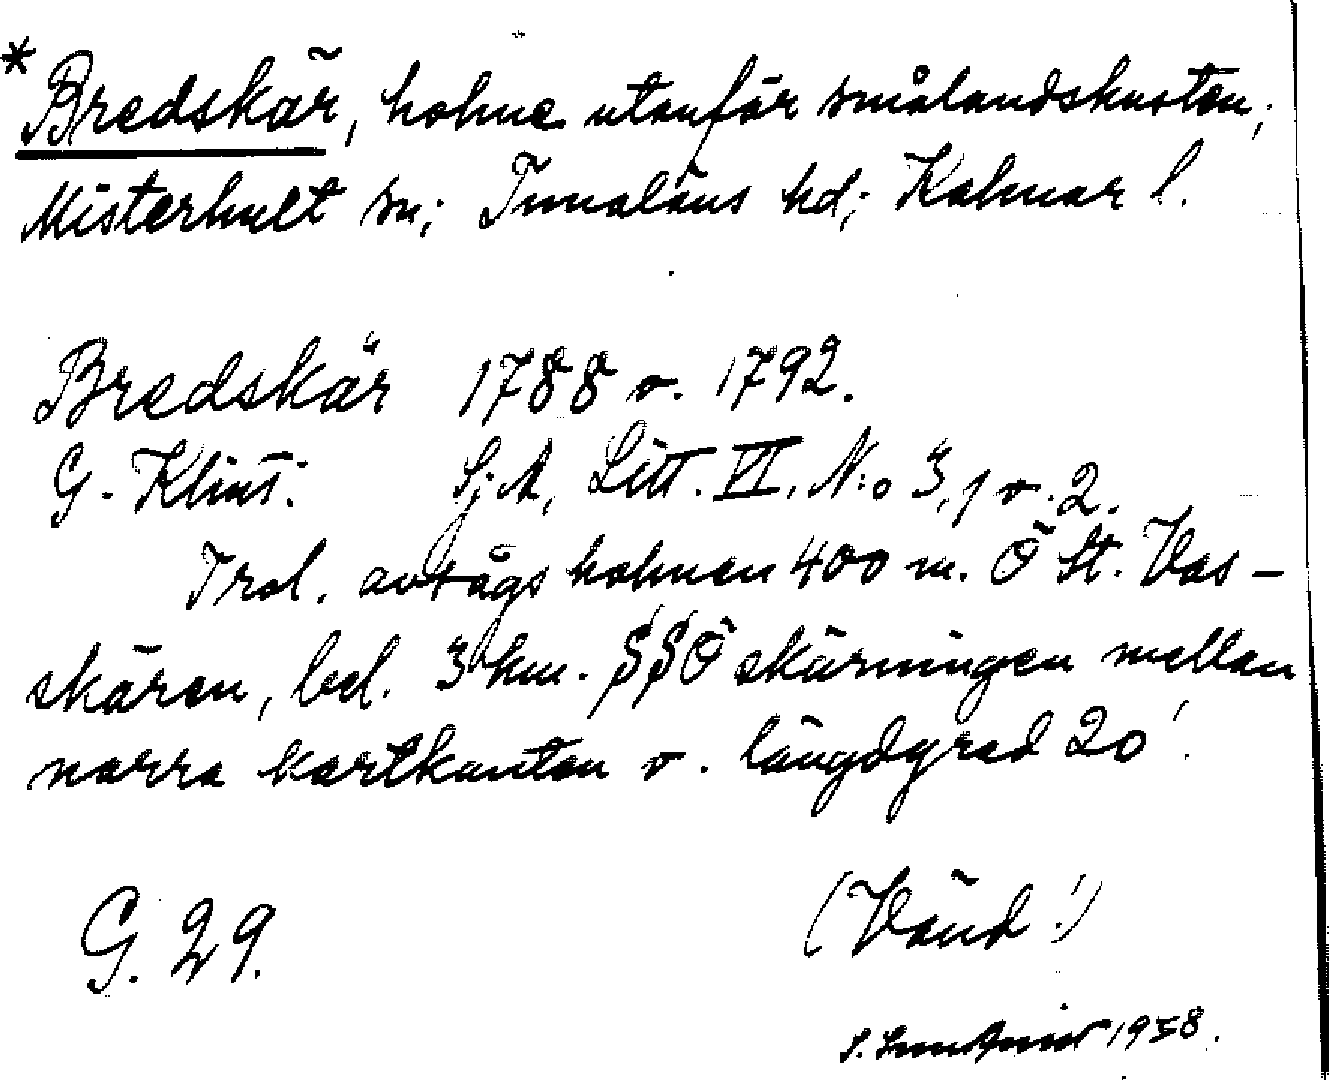 * Bredskär, holme utanför smålandskusten;
Misterhult sn; Tunaläns hd; Kalmar l.
Bredskär 1788 o. 1792.
G. Klint. SjA, Litt. VI. N:o 3, 1 o. 2.
Trol. avsågs holmen 400 m. Ö St. Vas-
skären, bel. 3 km. SSÖ skärningen mellan
norra kartkanten o. längdgrad 20'.
G. 29. (Vänd!)
1958.